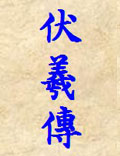 伏羲傳